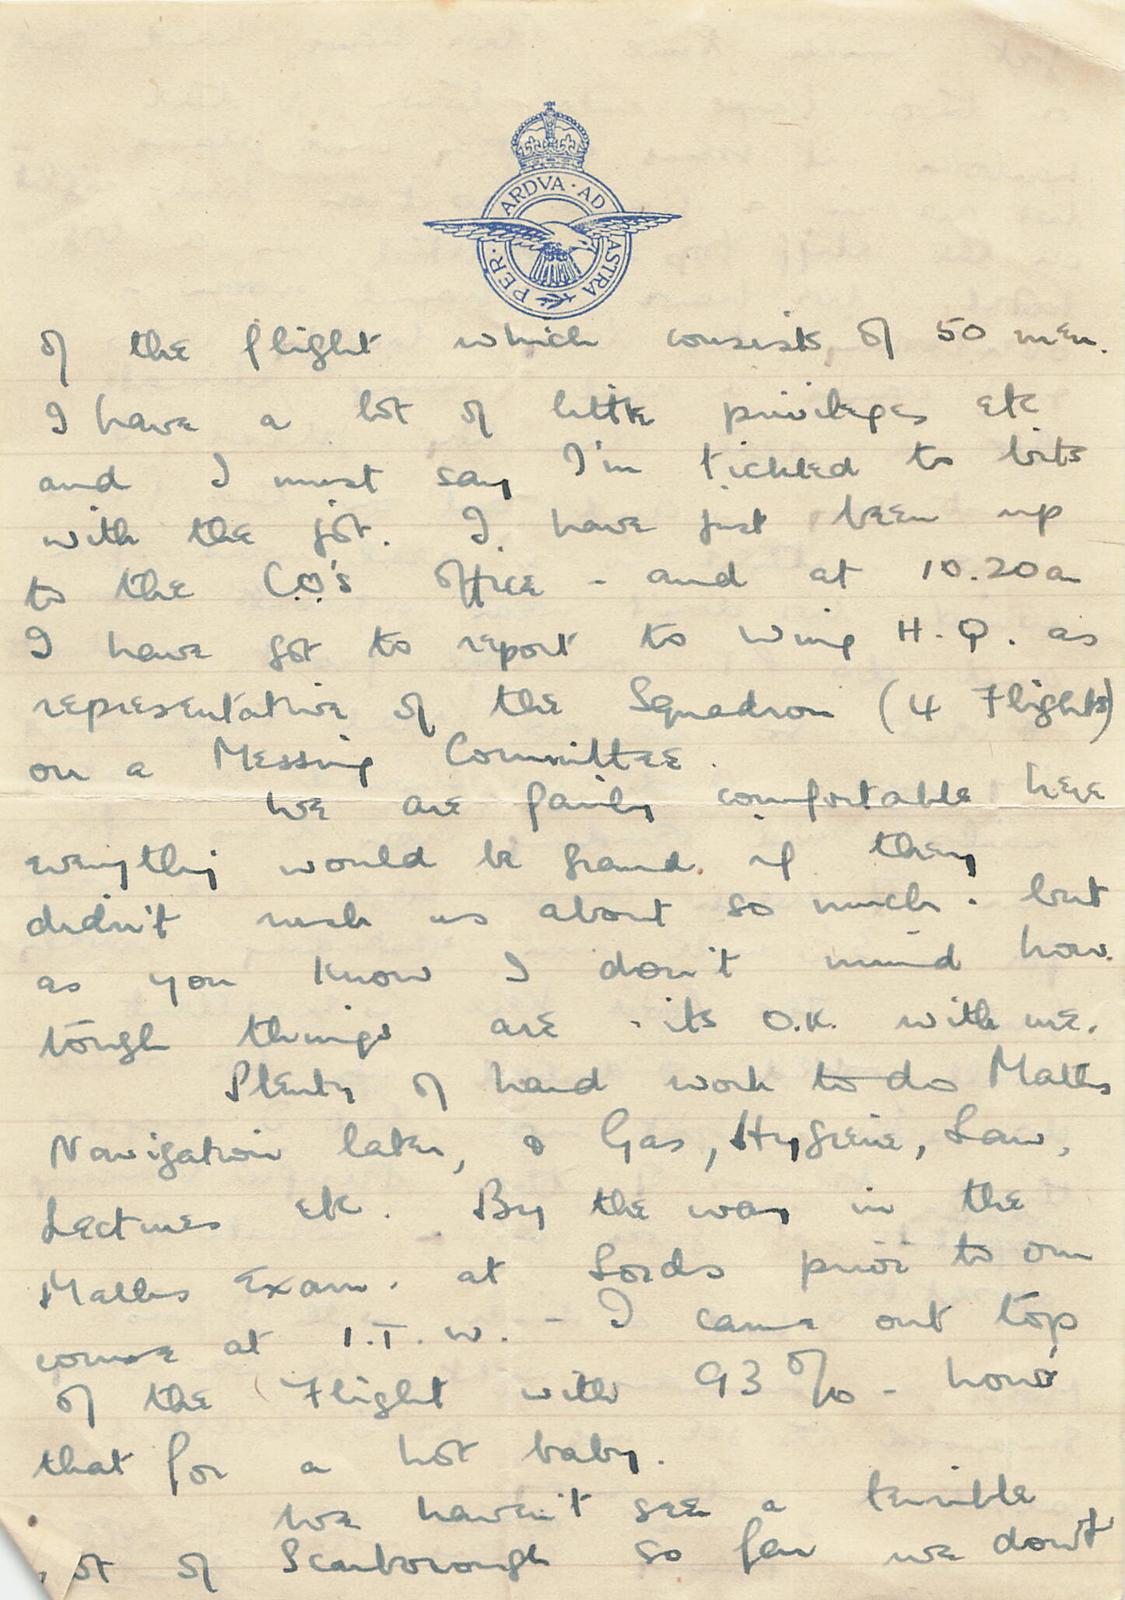 PER · ARDVA · AD ASTRA
of the flight which consists of 50 men.
I have a lot of little privileges etc
and I must say I'm tickled to bits
with the job. I have just been up
to the C.O.'s Office - and at 10.20am
I have got to report to Wing H.Q. as
representative of the Squadron (4 Flights)
on a Messing Committee.
We are fairly comfortable here
everything would be grand if they
didn't rush us about so much. but
as you know I don't mind how
tough things are - its O.K. with me.
Plenty of hard work to do Maths
Navigation later, & Gas, Hygiene, Law,
Lectures etc. By the way in the
Maths Exam. at Lords prior to our
course at I.T.W. - I came out top
of the Flight with 93% - how's
that for a hot baby.
We haven't see a terrible
lot of Scarborough so far we don't